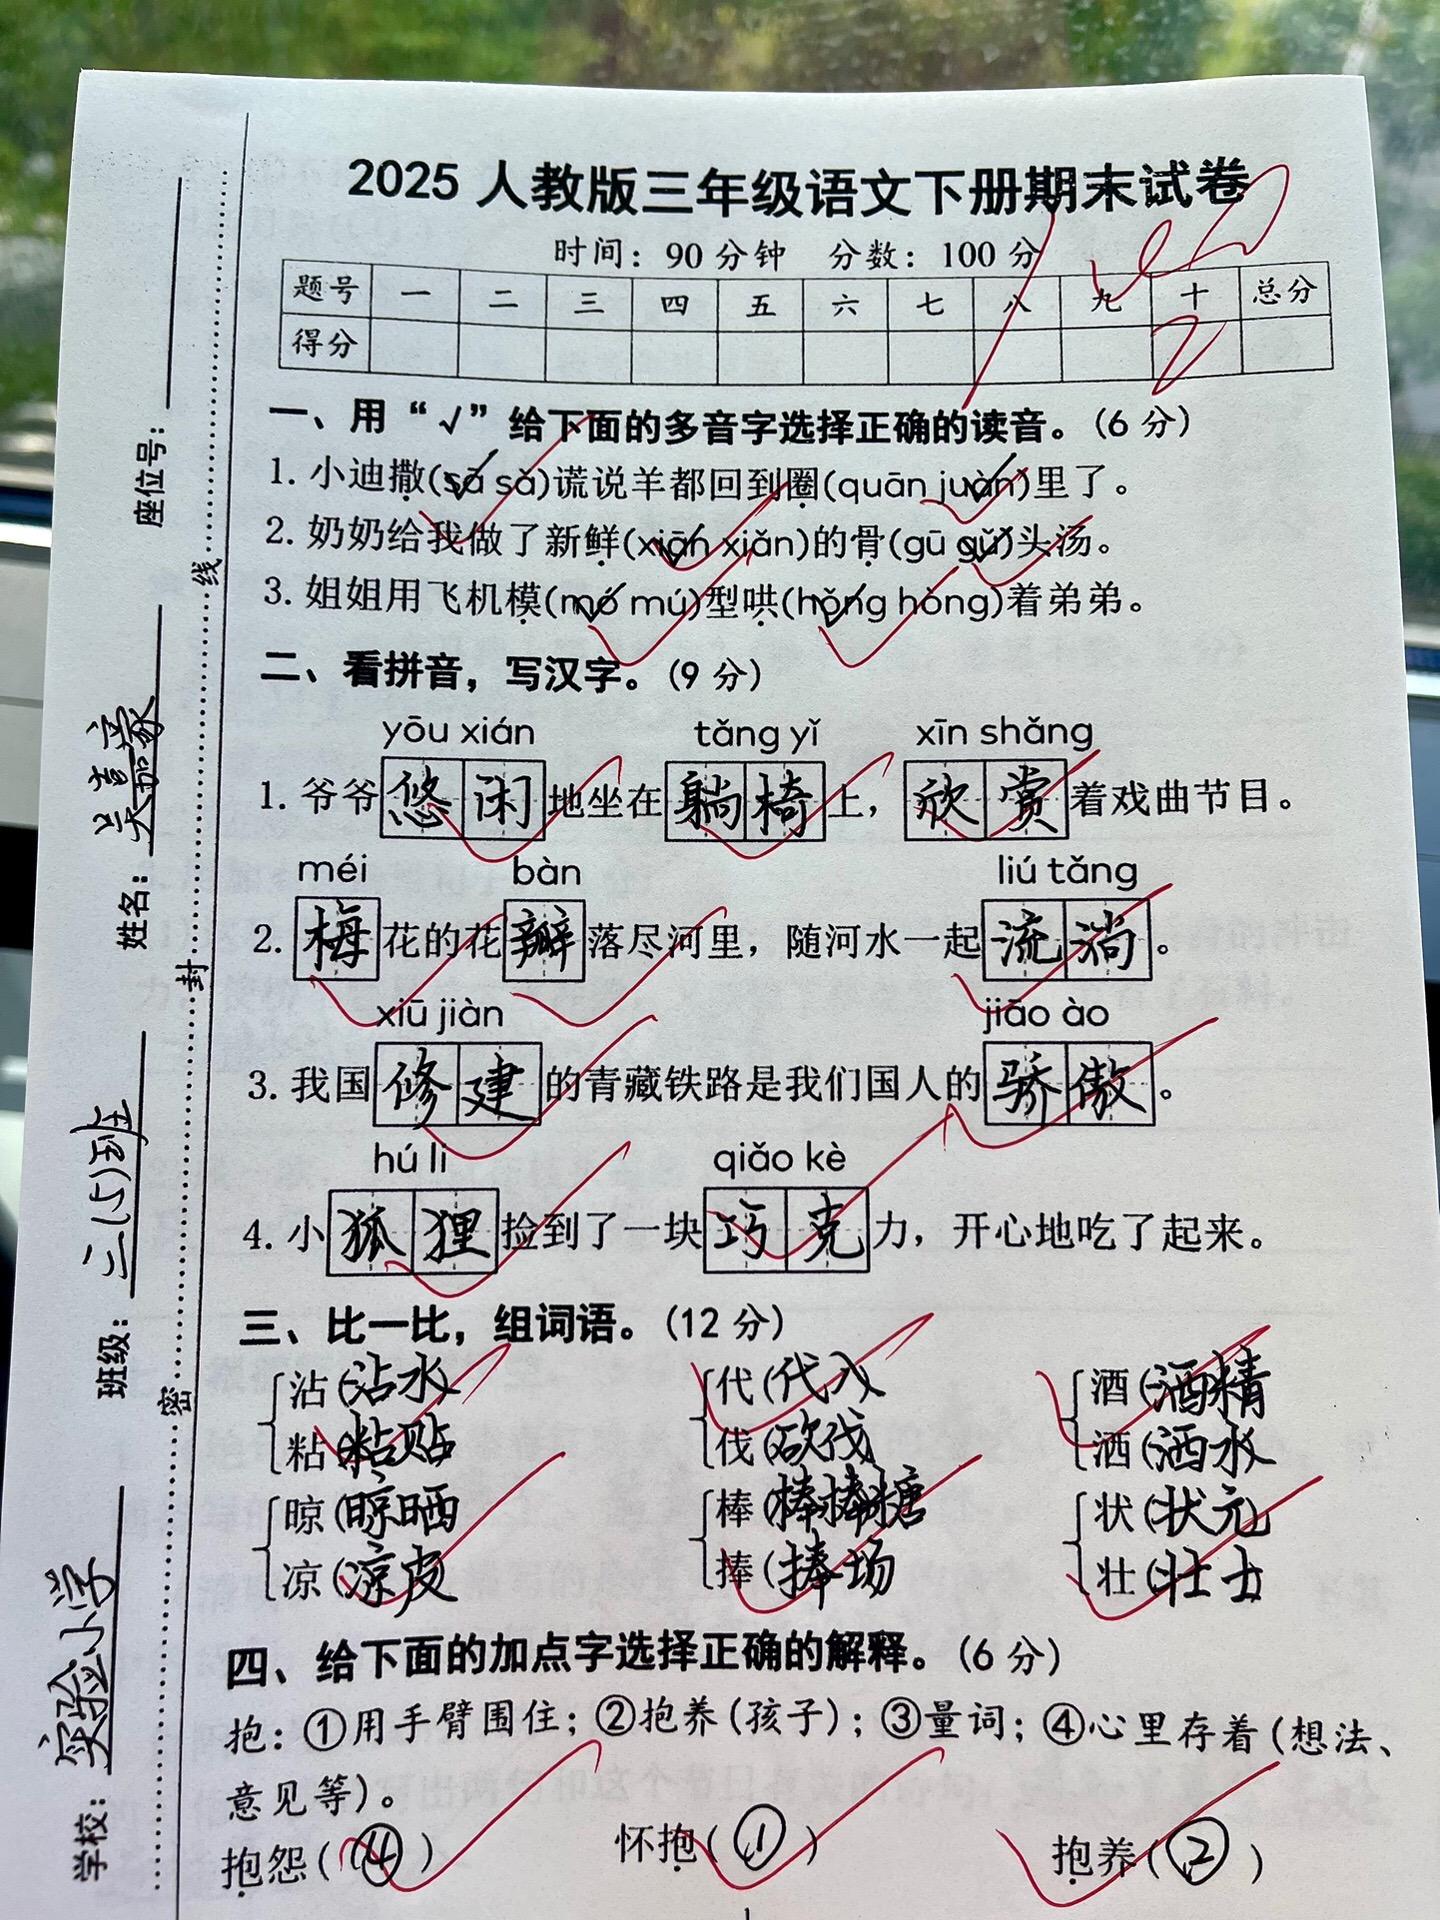 2025 人教版三年级语文下册期末试卷
时间：90 分钟 分数：100 分
题号 一 二 三 四 五 六 七 八 九 十 总分
得分
一、用“√”给下面的多音字选择正确的读音。(6 分)
1. 小迪撒(sā sà)谎说羊都回到圈(quān juàn)里了。
2. 奶奶给我做了新鲜(xiān xiǎn)的骨(gū gǔ)头汤。
3. 姐姐用飞机模(mó mú)型哄(hǒng hòng)着弟弟。
二、看拼音，写汉字。(9 分)
yōu xián tǎng yǐ xīn shǎng
1. 爷爷悠闲地坐在躺椅上，欣赏着戏曲节目。
méi bàn liú tǎng
2. 梅花的花瓣落尽河里，随河水一起流淌。
xiū jiàn jiāo ào
3. 我国修建的青藏铁路是我们国人的骄傲。
hú li qiǎo kè
4. 小狐狸捡到了一块巧克力，开心地吃了起来。
三、比一比，组词语。(12 分)
沾(沾水) 代(代入) 酒(酒精)
粘(粘贴) 伐(砍伐) 洒(洒水)
晾(晾晒) 棒(棒棒糖) 状(状元)
凉(凉皮) 捧(捧场) 壮(壮士)
四、给下面的加点字选择正确的解释。(6 分)
抱：①用手臂围住；②抱养(孩子)；③量词；④心里存着(想法、
意见等)。
抱怨(④) 怀抱(①) 抱养(②)
1
学校：实验小学
班级：三(5)班
姓名：吴嘉豪
座位号：
密 封 线